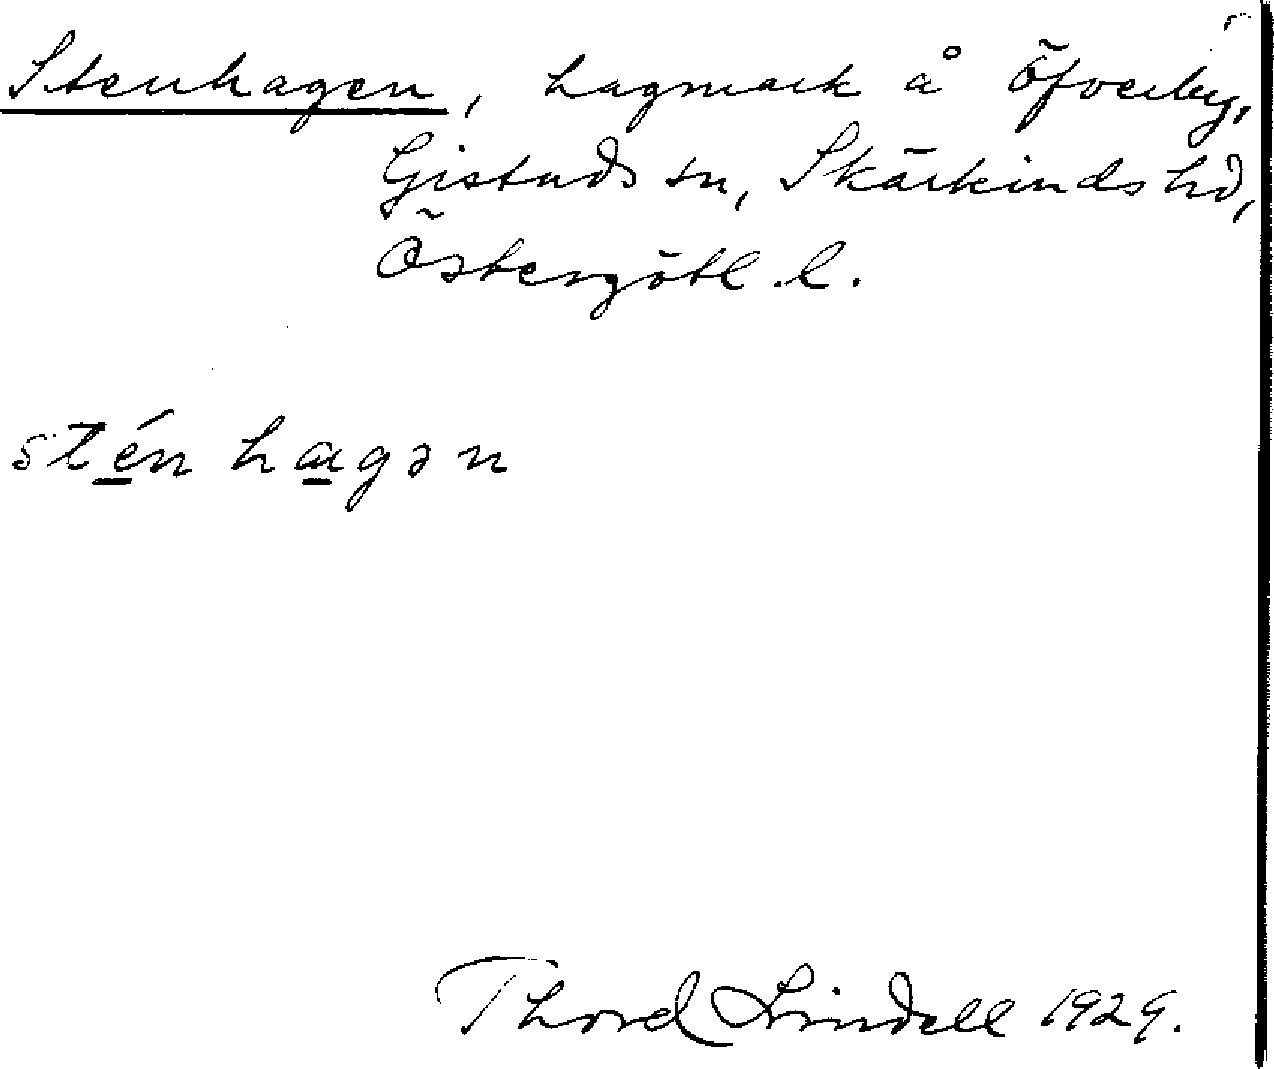 Stenhagen, hagmark å Öfverby,
Gistads sn, Skärkinds hd,
Östergötl. l.
sté̲n ha̲gən
Thord Lindell 1929.